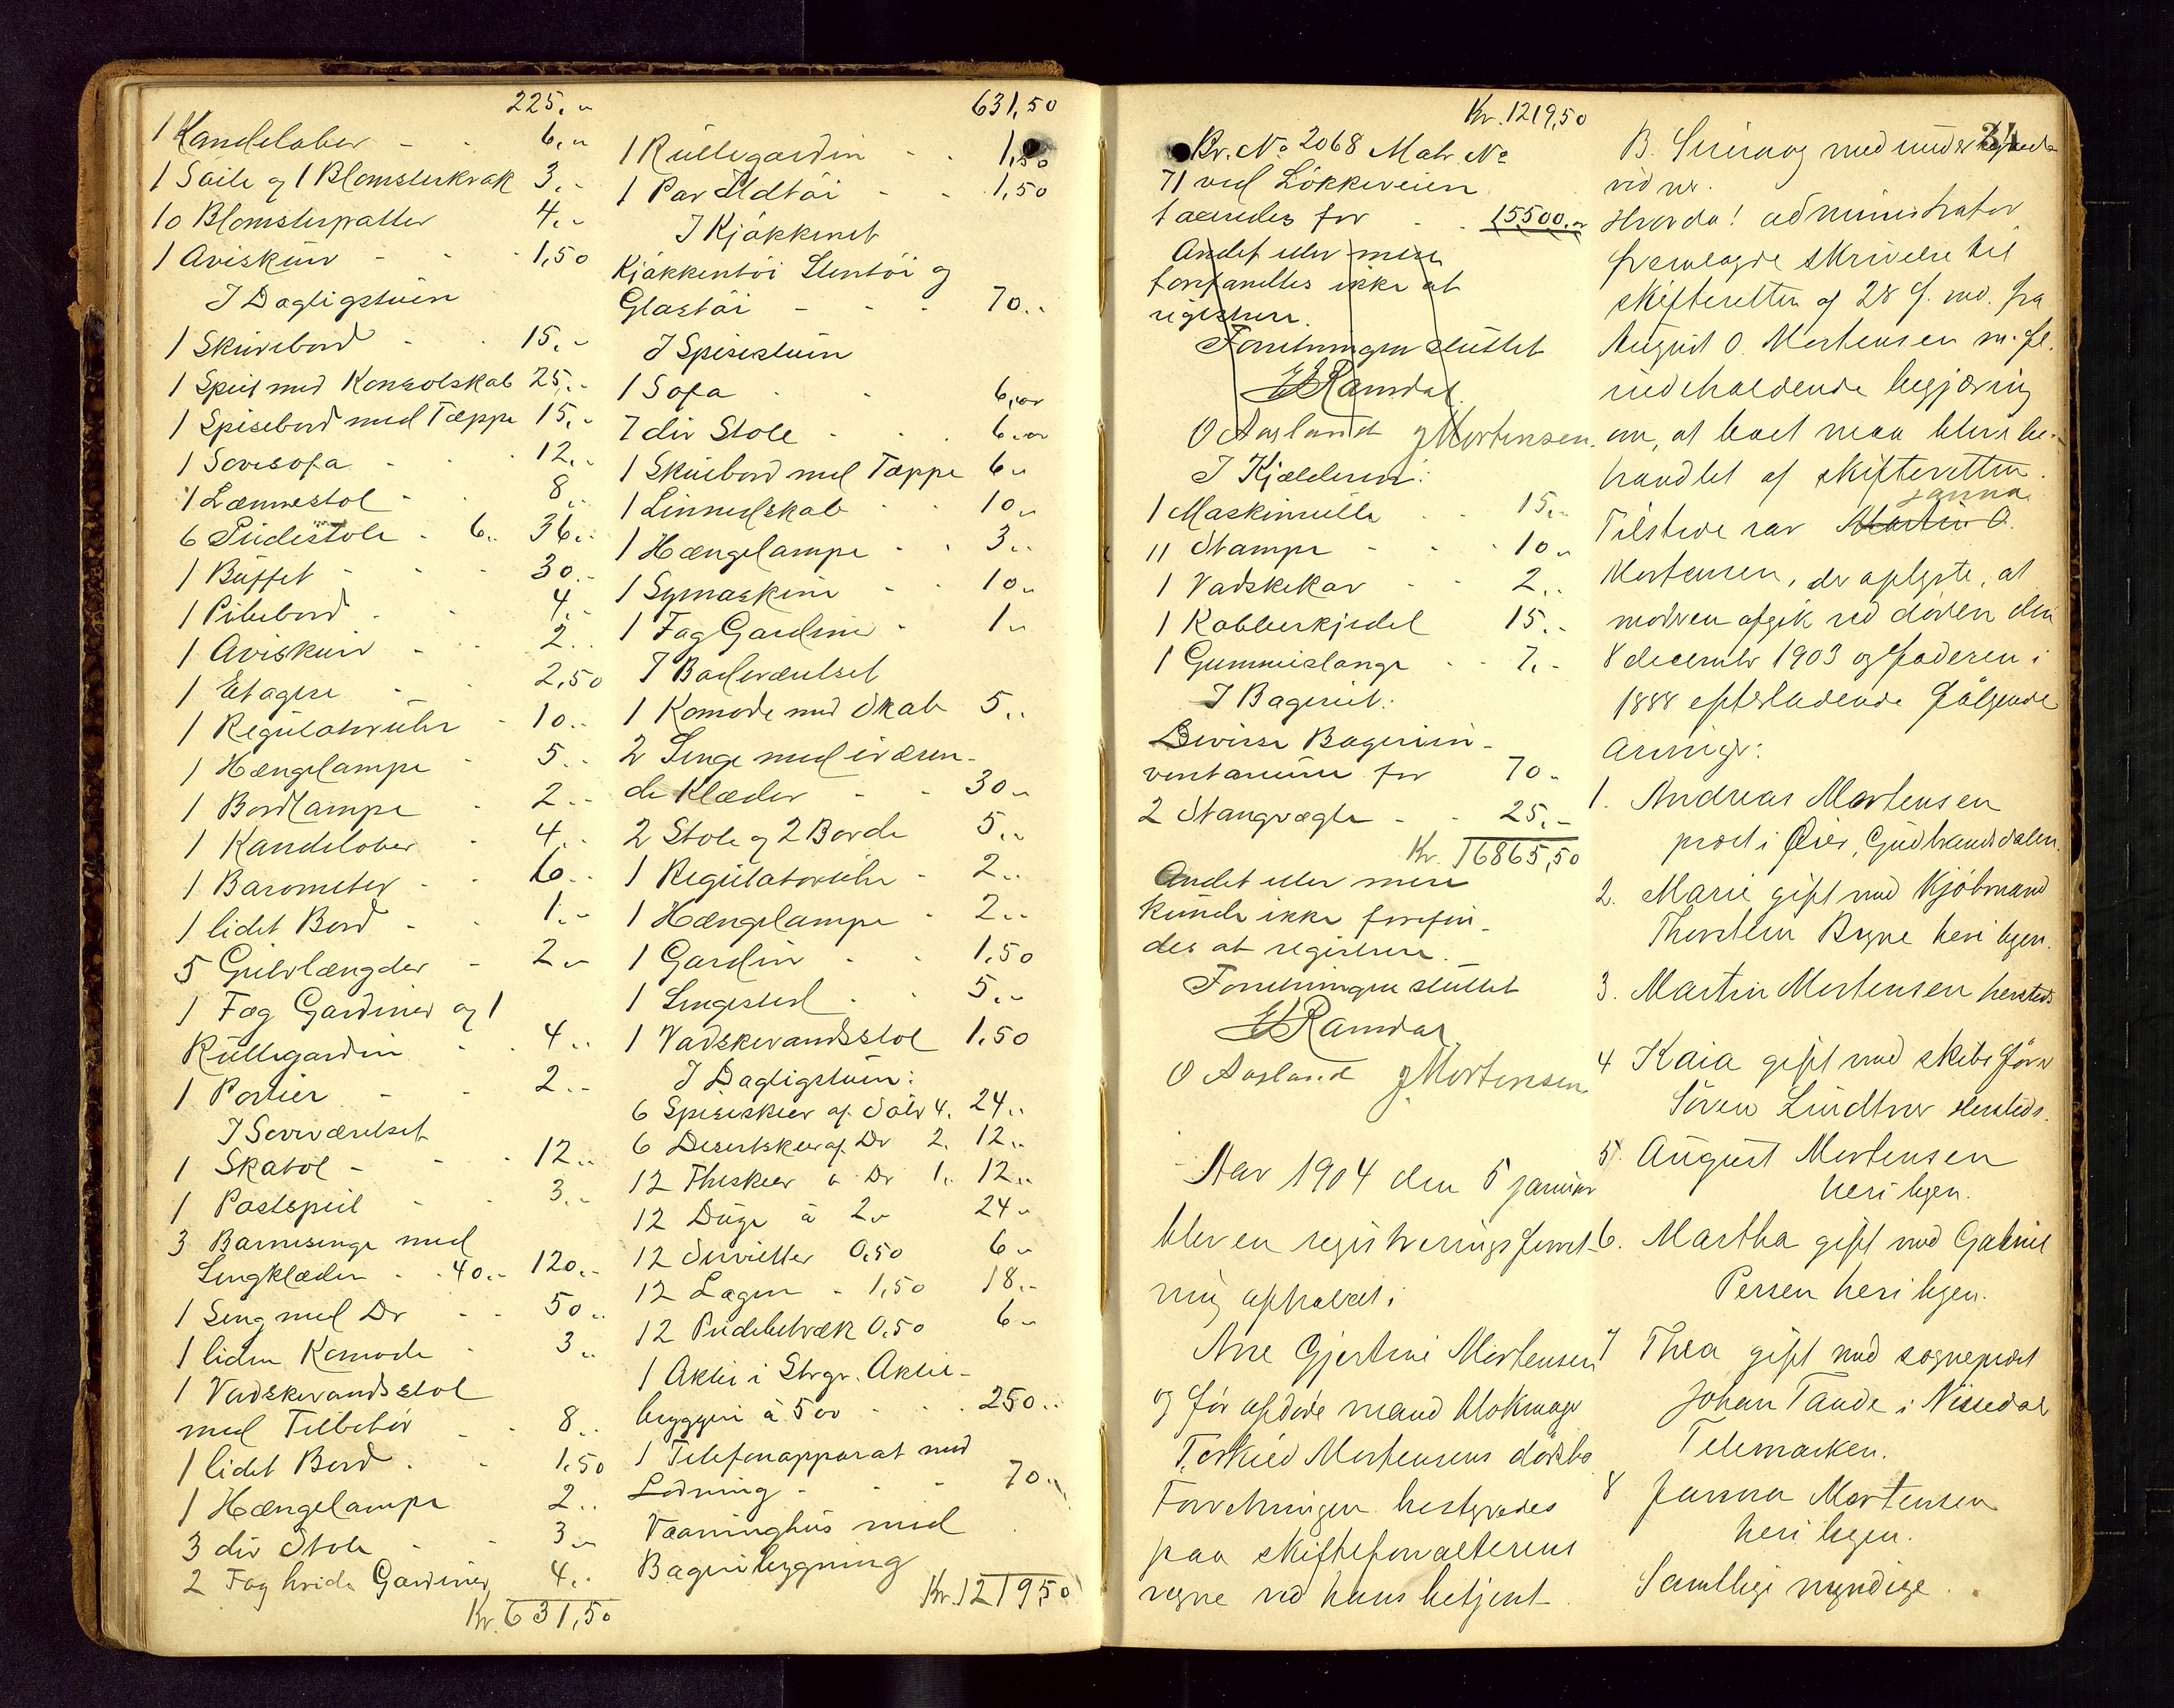 225.-
1 Kandelaber - - 6.-
1 Søile og 1 Blomsterkrak 3.-
10 Blomsterpotter 4.-
1 Aviskurv - - 1,50
I Dagligstuen
1 Skrivebord - 15.-
1 Speil med Konsolskab 25.-
1 Spisebord med Tæppe 15.-
1 Sovesofa - - 12.-
1 Lænnestol - 8.-
6 Pudestole - 6.. 36.-
1 Büffet - - 30.-
1 Pibebord - - 4.-
1 Aviskurv - - 2..
1 Etagere - - 2,50
1 Regulatoruhr - 10..
1 Hængelampe - 5..
1 Bordlampe - 2..
1 Kandelaber - 4..
1 Barometer - - 6..
1 lidet Bord - - 1.-
5 Gulvlængder - 2.-
1 Fag Gardiner og 1
Rullegardin - - 4..
1 Portier - - 2..
I Soveværelset
1 Skatol - - 12..
1 Postspeil - - 3..
3 Barnesenge med
Sengklæder - 40.- 120.-
1 Seng med Do - - 50..
1 liden Komode - 3..
1 Vadskevandsstol
med Tilbehør - - 8..
1 lidet Bord - - 1.50
1 Hængelampe 2..
3 div Stole - - 3.-
2 Fag hvide Gardiner 4..
Kr. 631,50
631,50
1 Rullegardin - - 1,50
1 Par Ildtøi - - 1,50
I Kjøkkenet
Kjøkkentøi Stentøi og
Glastøi - - - 70..
I Spisestuen
1 Sofa - - 6,00
7 div Stole - - 6.00
1 Skuebord med Tæppe 6.-
1 Linnedskab - - 10.-
1 Hængelampe - - 3..
1 Symaskine - - 10..
1 Fag Gardiner - 1.-
I Badeværelset
1 Komode med Skab 5..
2 Senge med iværen-
de Klæder - - 30.-
2 Stole og 2 Borde 5..
1 Regulatoruhr - 2..
1 Hængelampe - 2..
1 Gardin - - 1.50
1 Sengested - - 5.-
1 Vadskevandsstol 1.50
I Dagligstuen:
6 Spiseskeer af Sølv 4. 24..
6 Desertskeer af Do 2. 12..
12 Theskeer a Do 1. 12..
12 Duge à 2.- 24.-
12 Servietter 0,50 6.-
12 Lagen - 1,50 18.-
12 Pudebetræk 0.50 6.-
1 Aktie i Stvgr. Aktie-
bryggeri à 500 - - 250..
1 Telefonapparat med
Ledning - - - 70..
Vaaninghus med
Bageribygning
Kr. 1219,50
Kr. 1219,50
Br. No 2068 Matr. No
71 ved Løkkeveien
taxeredes for - - 15500.-
Andet eller mere
forefandtes ikke at
registrere.
Forretningen sluttet
E Ramdal
O Aasland J Mortensen.
I Kjælderen:
1 Maskinrulle - - 15.-
11 Stampe - - - 10.-
1 Vadskekar - - 2..
1 Kobberkjedel 15..
1 Gummislange - - 7.-
I Bageriet:
Diverse Bageriin-
ventarium for 70.-
2 Stangvægte - - 25.-
Kr. 16865,50
Andet eller mere
kunde ikke forefin-
des at registrere.
Forretningen sluttet
E Ramdal
O Aasland J Mortensen
Aar 1904 den 5 januar
blev en registreringsforret-
ning afholdt i
Ane Gjertine Mortensen
og før afdøde mand blokmager
Torkild Mortensens dødsbo
Forretningen bestyredes
paa skifteforvalterens
vegne ved hans betjent
34
B. Sirevaag med undertegnede
vidner.
Hvorda! administrator
fremlagde skrivelse til
skifteretten af 28 f. md. fra
August O. Mortensen m. fl.
indeholdende begjæring
om, at boet maa blive be-
handlet af skifteretten.
Janna
Tilstede var Martin O.
Mortensen, der oplyste, at
moderen afgik ved døden den
8 december 1903 og faderen i
1888 efterladende følgende
arvinger:
1. Andreas Mortensen
prest i Øier, Gudbrandsdalen.
2. Marie gift med Kjøbmand
Thorstein Bryne her i byen.
3. Martin Mortensen hersteds
4 Kaia gift med skibsfører
Søren Lindtner hersteds.
5. August Mortensen
her i byen.
6. Martha gift med Gabriel
Persen her i byen.
7 Thea gift med sogneprest
Johan Tande i Nissedal
Telemarken.
8 Janna Mortensen
her i byen.
Samtlige myndige.